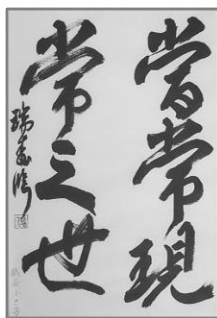 當常現
常之世
瑞